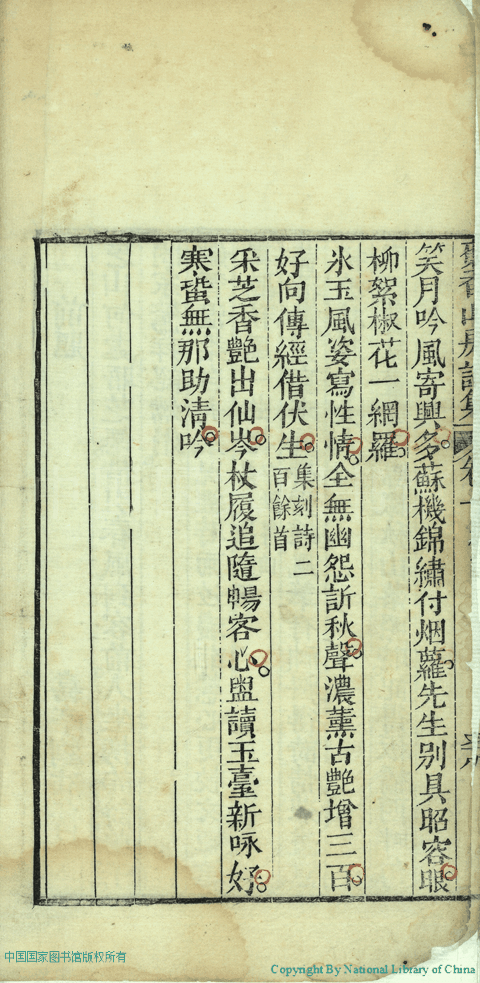 笑月吟風寄興多蘇機錦繡付烟蘿先生別具昭容眼
柳絮椒花一網羅
氷玉風姿寫性情全無幽怨訴秋聲濃薰古艷增三百
好向傳經借伏生集刻詩二百餘首
采芝香艷出仙岑杖履追隨暢客心盥讀玉臺新咏好
寒蛩無那助清吟
中国国家图书馆版权所有
Copyright By National Library of China